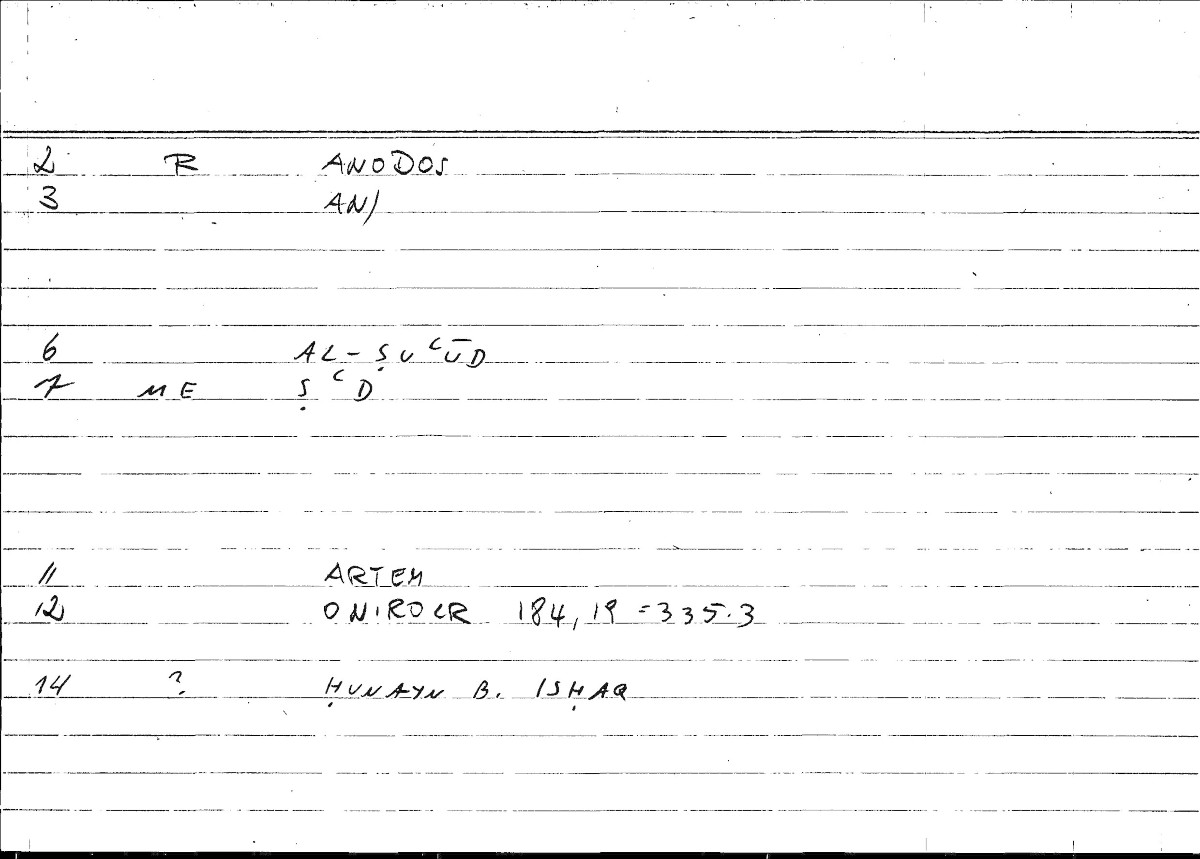 2 R ANODOS
3 AN)
6 AL-ṢUʿŪD
7 ME ṢʿD
11 ARTEM
12 ONIROCR 184,19 = 335.3
14 ? ḤUNAYN B. ISḤAQ